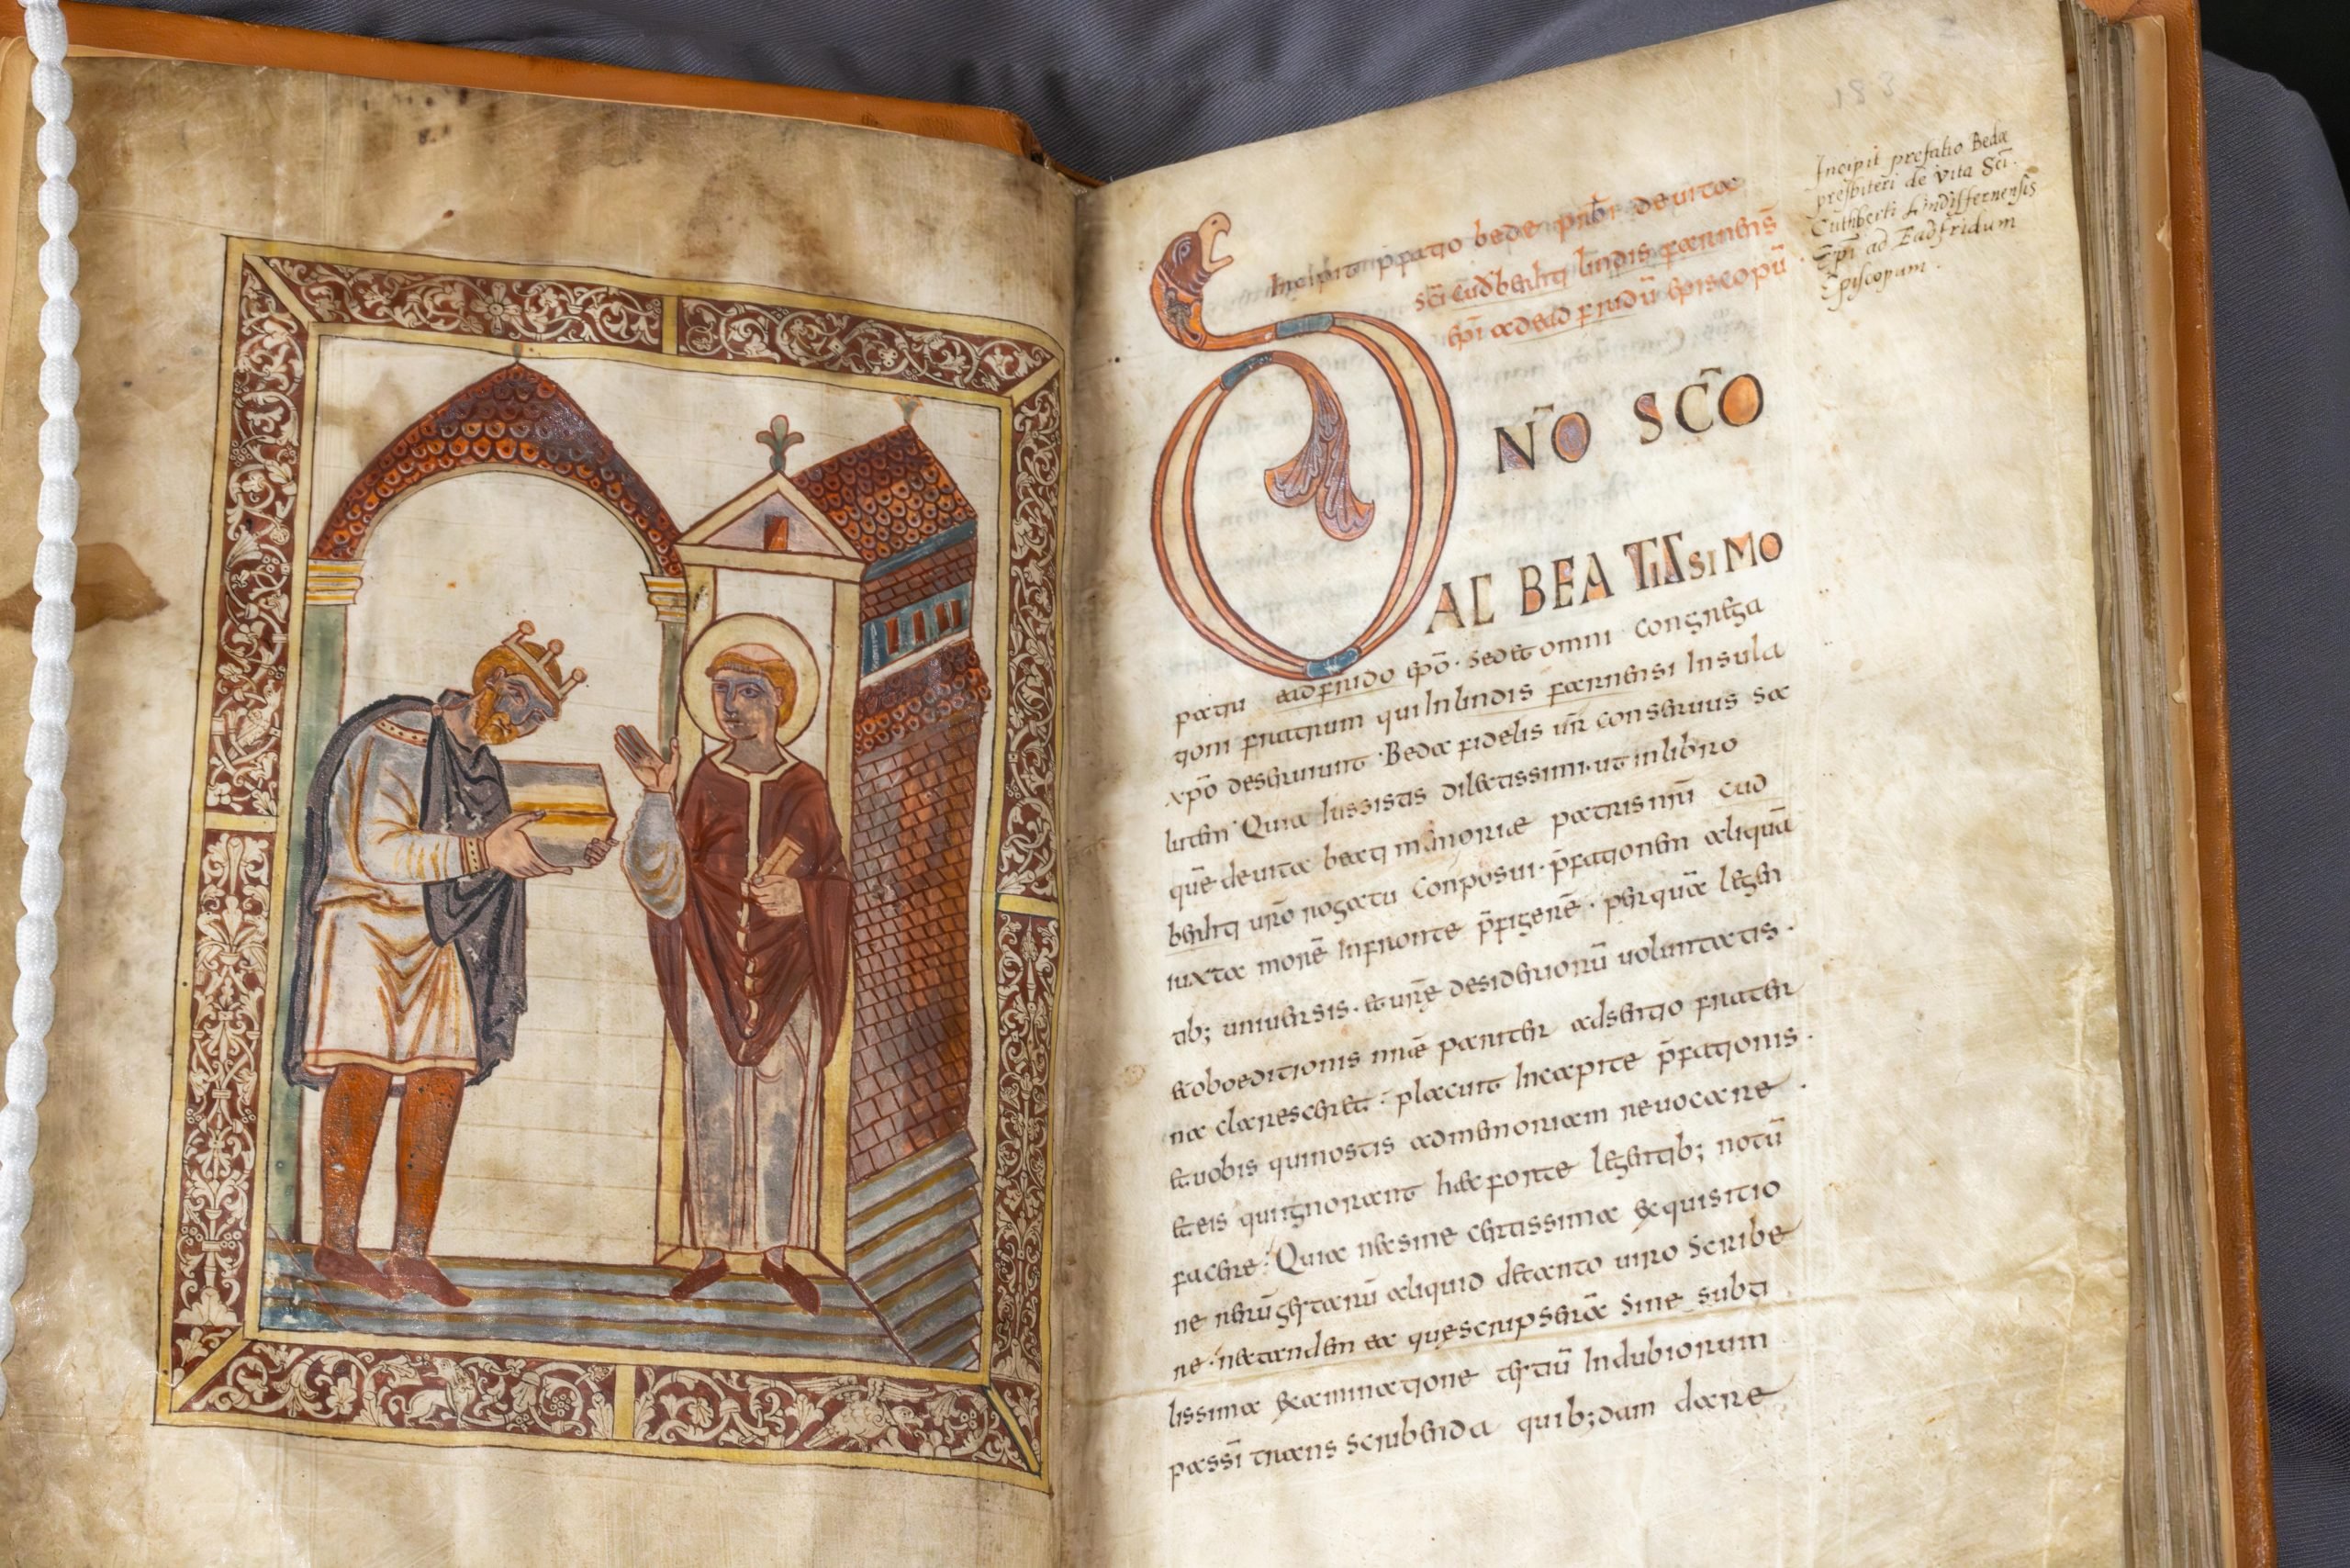 183
Incipit prefatio Bedæ
presbiteri de vita Sc̄i
Cuthberti Lindiffernensis
Ep̄i ad Eadfridum
Episcopum.
Incipit p̄fatio bede prb̄r de uita
sc̄i cudberhti lindisfarnensīs
ep̄i ad eadfridū episcopū
DN̄O SC̄O
AC BEATISSIMO
patri eadfrido ep̄o · sed et omni congrega
tioni fratrum qui In lindisfarnensi Insula
xp̄o deseruiunt · Beda fidelis ur̄ conseruus sa
lutem · Quia Iussistis dilectissimi · ut in libro
quē de uita beati memoriæ patris nr̄i cud
berhti uro̅ rogatu conposui · p̄fationem aliquā
iuxta morē In fronte p̄figerē · per quā legen
tib; uniuersis · et ur̄ę desideriorū uoluntatis ·
et oboeditionis nr̄æ pariter adsentio frater
na claresceret · placuit In capite p̄fationis ·
et uobis qui nostis ad memoriam reuocare ·
et eis qui ignorant hæc forte legentib; notū
facere · Quia nec sine certissima exquisitio
ne rerū gestarū aliquid de tanto uiro scribe
re · nec tandem ea quę scripserā sine subti
lissima examinatione testiū Indubiorum
passī transscribenda quib;dam dare